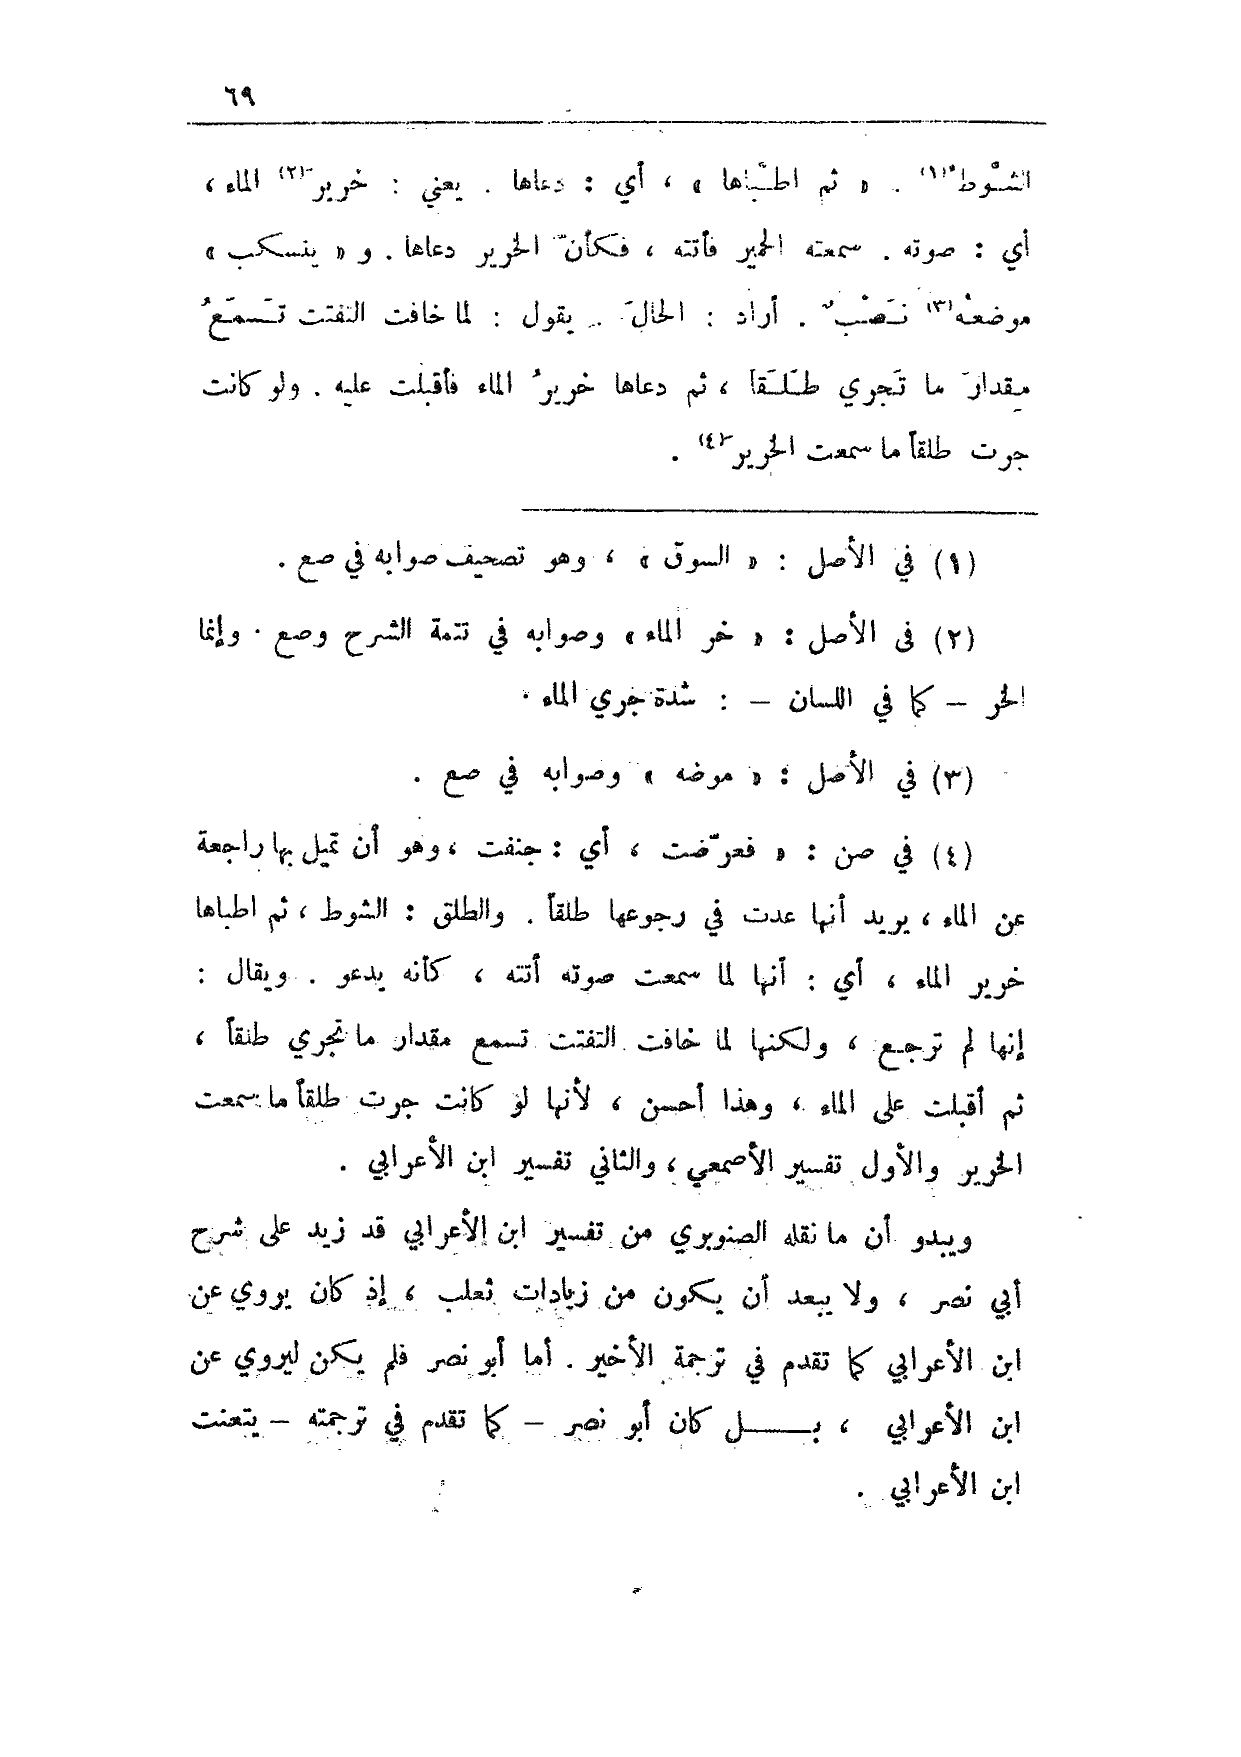 ٦٩
الشَّوْطُ(١) . « ثم اطّبّاها » ، أي : دعاها . يعني : خريرَ(٢) الماء ،
أي : صوته . سمعته الحمير فأتته ، فكأنّ الخرير دعاها . و « ينسكب »
موضعُهُ(٣) نَصْبٌ . أراد : الحالَ . يقول : لما خافت التفتت تَسَمَّعُ
مقدارَ ما تَجري طَلَقاً ، ثم دعاها خريرُ الماء فأقبلت عليه . ولو كانت
جرت طلقاً ما سمعت الخريرَ(٤) .
(١) في الأصل : « السوق » ، وهو تصحيف صوابه في صع .
(٢) في الأصل : « خر الماء » وصوابه في تتمة الشرح وصع . وإنما
الخر – كما في اللسان – : شدة جري الماء .
(٣) في الأصل : « موضه » وصوابه في صع .
(٤) في صن : « فعرّضت ، أي : جنفت ، وهو أن تميل بها راجعة
عن الماء ، يريد أنها عدت في رجوعها طلقاً . والطلق : الشوط ، ثم اطباها
خرير الماء ، أي : أنها لما سمعت صوته أتته ، كأنه يدعو . ويقال :
إنها لم ترجع ، ولكنها لما خافت التفتت تسمع مقدار ما تجري طلقاً ،
ثم أقبلت على الماء ، وهذا أحسن ، لأنها لو كانت جرت طلقاً ما سمعت
الخرير والأول تفسير الأصمعي ، والثاني تفسير ابن الأعرابي .
ويبدو أن ما نقله الصنوبري من تفسير ابن الأعرابي قد زيد على شرح
أبي نصر ، ولا يبعد أن يكون من زيادات ثعلب ، إذ كان يروي عن
ابن الأعرابي كما تقدم في ترجمة الأخير . أما أبو نصر فلم يكن ليروي عن
ابن الأعرابي ، بــــل كان أبو نصر – كما تقدم في ترجمته – يتعنت
ابن الأعرابي .